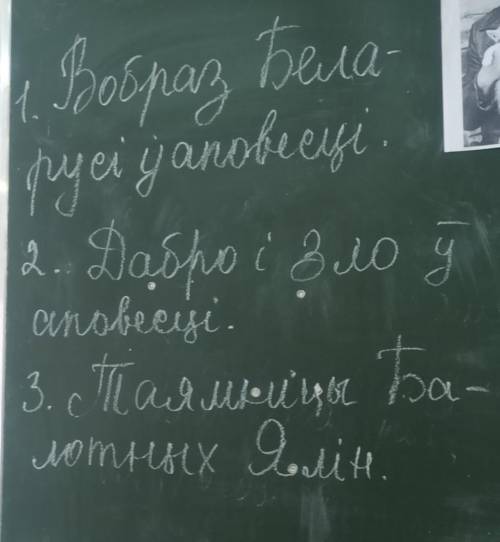 1. Вобраз Бела-
русі ў аповесці.
2. Дабро і Зло ў
аповесці.
3. Таямніцы Ба-
лотных Ялін.